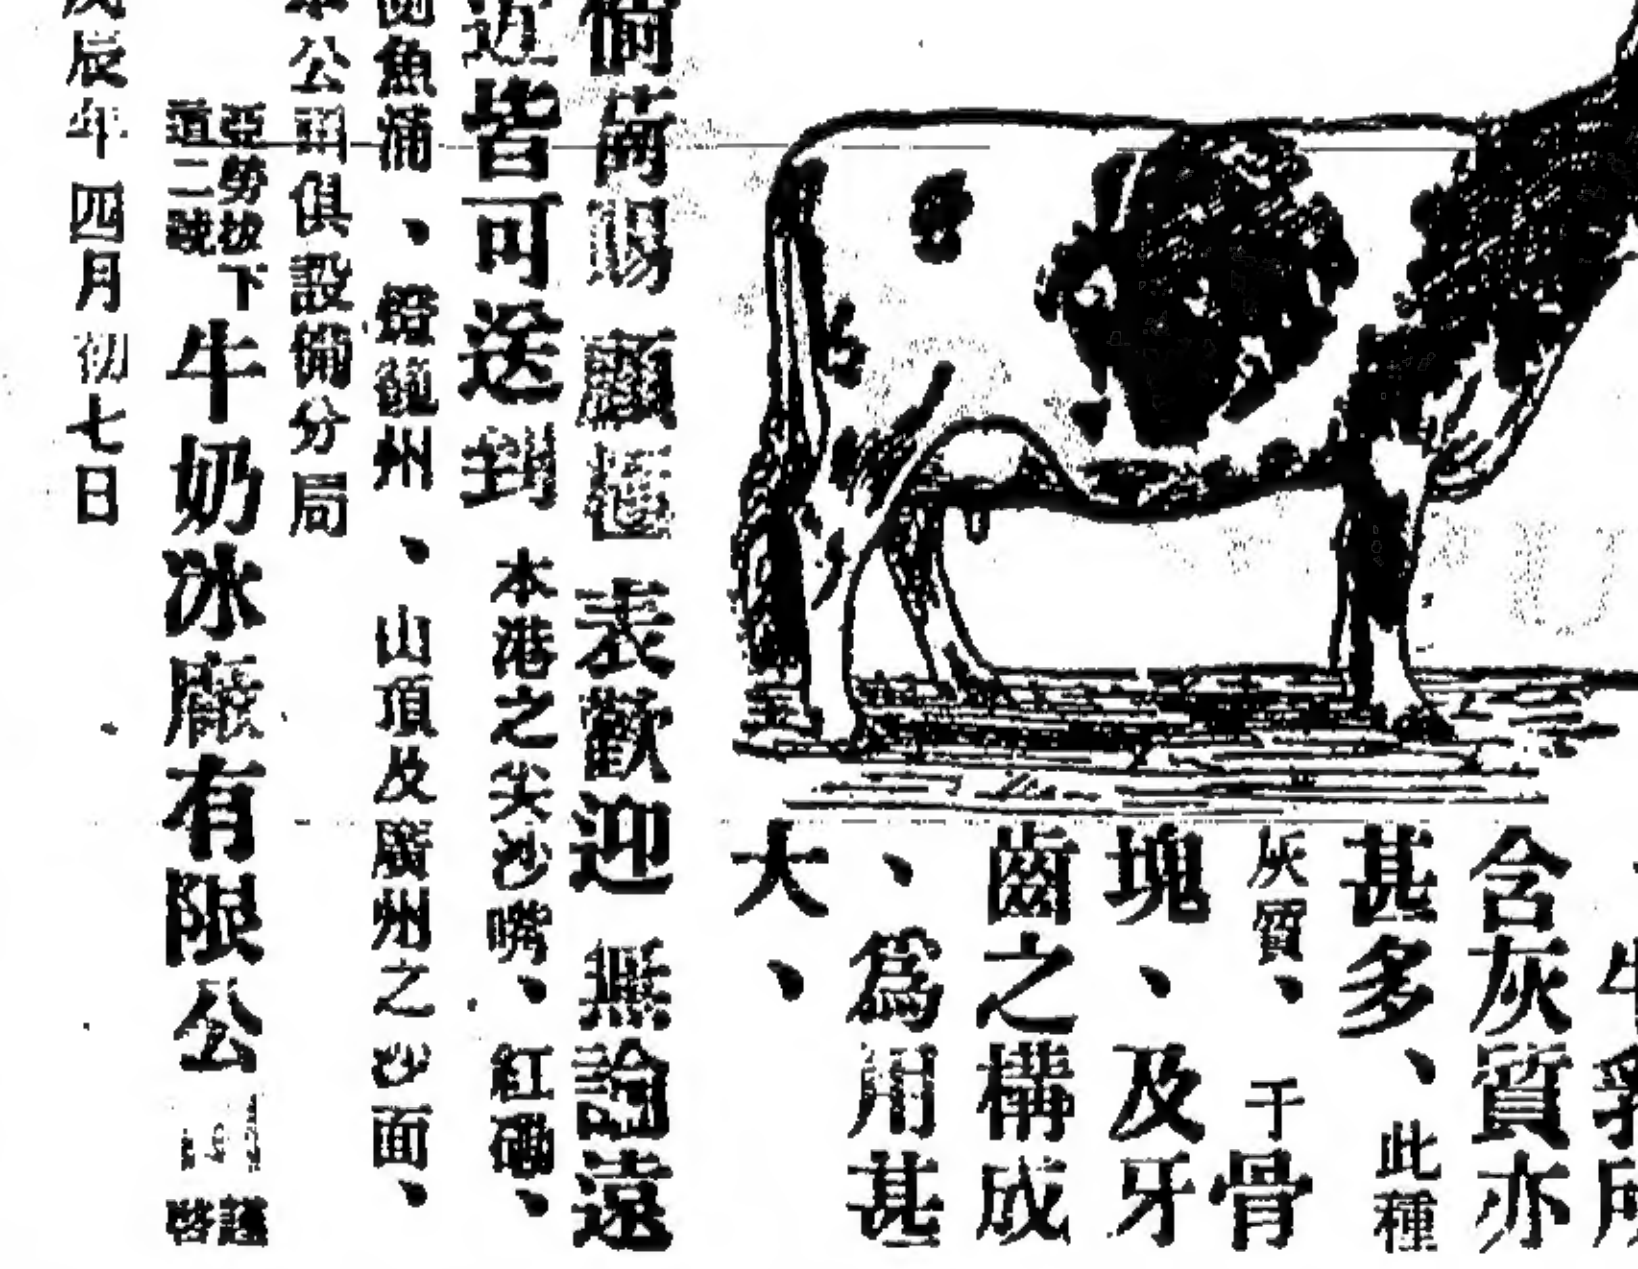 牛乳所
含灰質亦
甚多、此種
灰質、于骨
塊、及牙
齒之構成
、爲用甚
大、
倘蒙賜顧 表歡迎 無論遠
近皆可送到 本港之尖沙嘴、紅磡、
魚涌、州、山頂及廣州之沙面、
公司俱設備分局
亞勞拔下
道二號
牛奶冰廠有限公司
謹
啓
辰年四月初七日